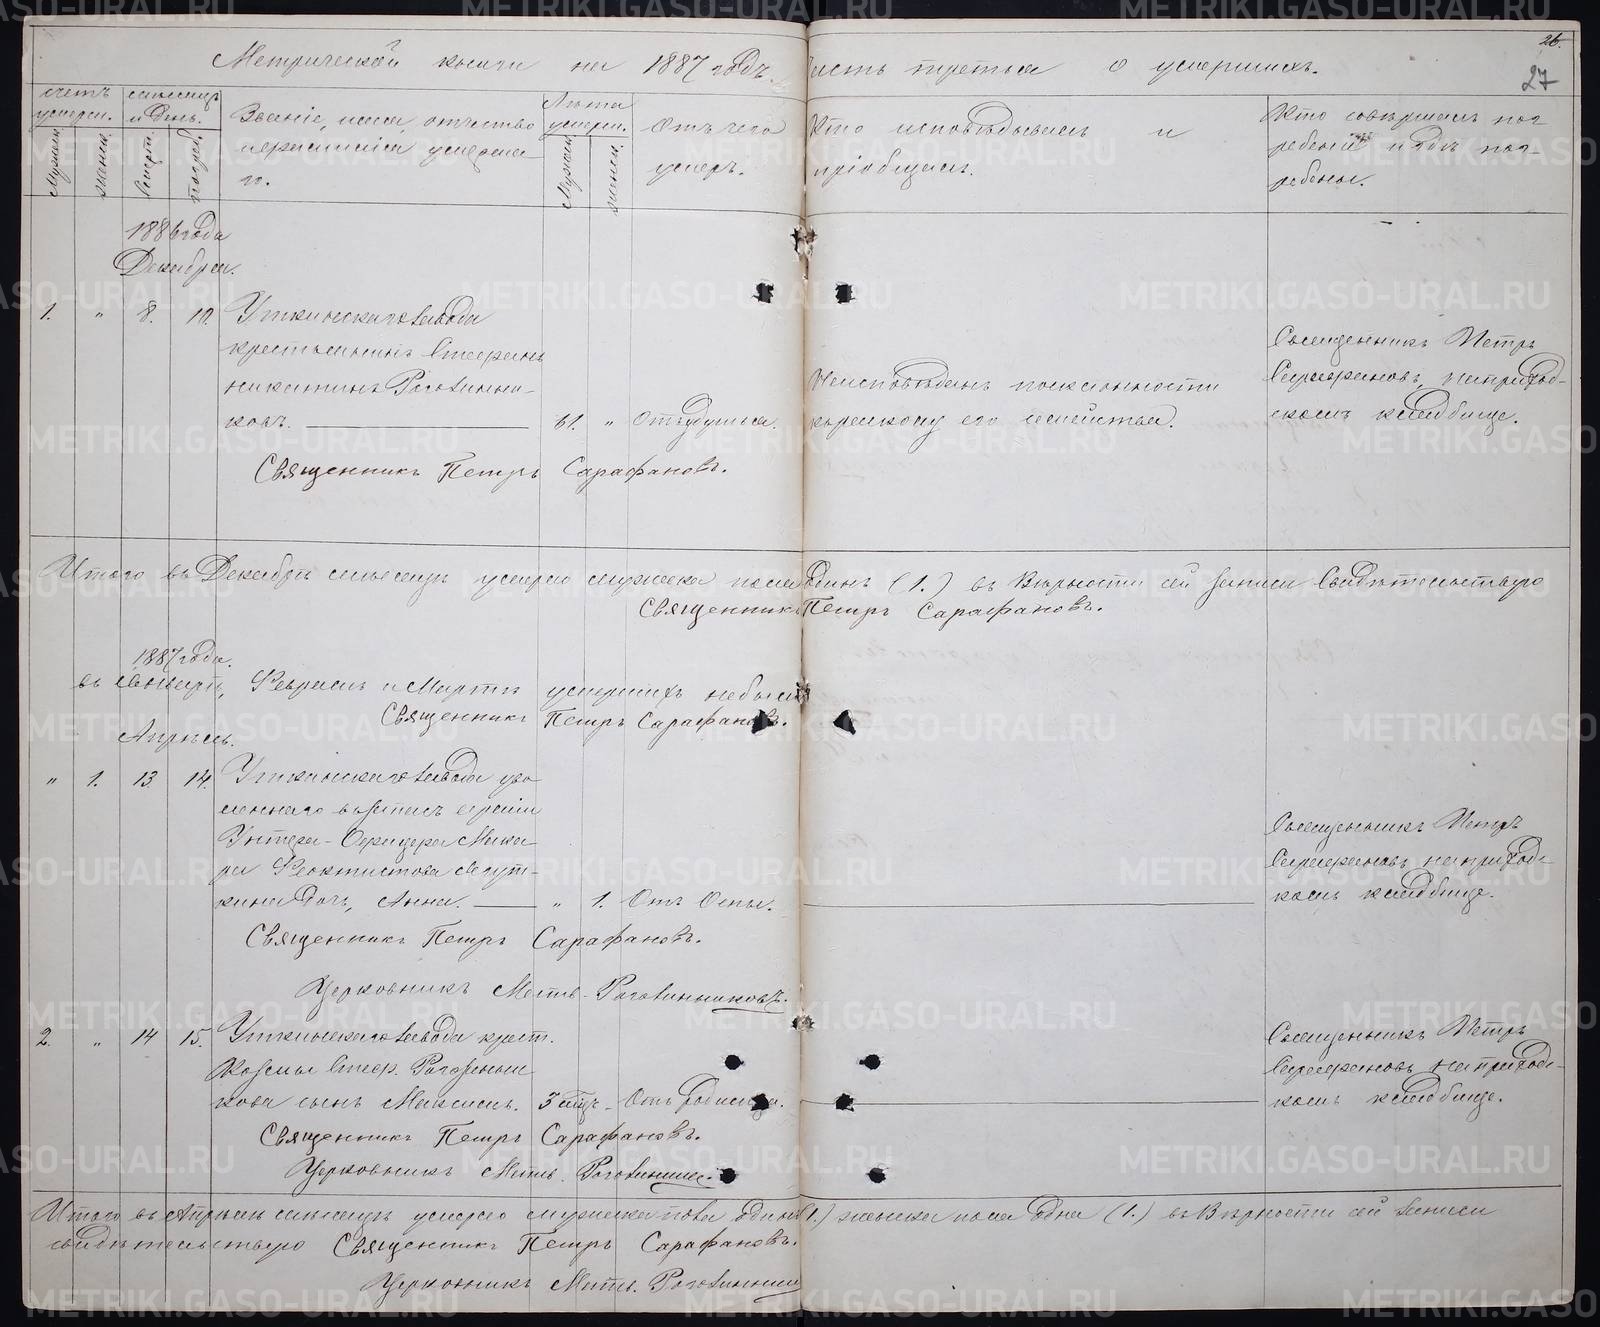 26.
27
Метрической книги на 1887 годъ. Часть третья о умершихъ.
Счетъ умерш.
Мужск.
женск.
Месяцъ и день.
Смерти.
погреб.
Званіе, имя, отчество
и фамилія умерша-
го.
Лѣта умерш.
Мужск.
женск.
Отъ чего
умеръ.
Кто исповѣдывалъ и
пріобщалъ.
Кто совершалъ пог
ребеніе и гдѣ пог-
ребены.
1886 года
Декабря.
1. " 8. 10. Уткинскаго завода
крестьянинъ Стефанъ
Никитинъ Роговинни-
ковъ. 61. " Отъ удушья.
Неисповѣданъ по
его семейства.
Священникъ Петръ
Сарафановъ, на приход-
скомъ кладбище.
Священникъ Петръ Сарафановъ.
Итого въ Декабрѣ месяцѣ умерло мужеска пола одинъ (1.) въ верности сей записи свидѣтельствую
Священникъ Петръ Сарафановъ.
1887 года.
въ Январѣ, Февралѣ и Мартѣ умершихъ небыло
Священникъ Петръ Сарафановъ.
Апрѣль.
" 1. 13. 14. Уткинскаго завода уво
леннаго въ запасъ арміи
Унтеръ-Офицера Мака
ра Феоктистова
дочь, Анна. " 1. Отъ Оспы.
Священникъ Петръ
Сарафановъ на приход-
комъ кладбище.
Священникъ Петръ Сарафановъ.
Церковникъ Матв. Роговинниковъ.
2. " 14 15. Уткинскаго завода крест.
Козмы Стеф. Роговинни
кова сынъ Максимъ. 3 мц. Отъ родимца.
Священникъ Петръ
Сарафановъ на приход-
комъ кладбище.
Священникъ Петръ Сарафановъ.
Церковникъ Матв. Роговинник.
Итого въ Апрѣлѣ месяцѣ умерло мужеска пола одинъ (1.) женска пола одна (1.) въ верности сей записи
свидѣтельствую Священникъ Петръ Сарафановъ.
Церковникъ Матв. Роговинник
METRIKI.GASO-URAL.RU